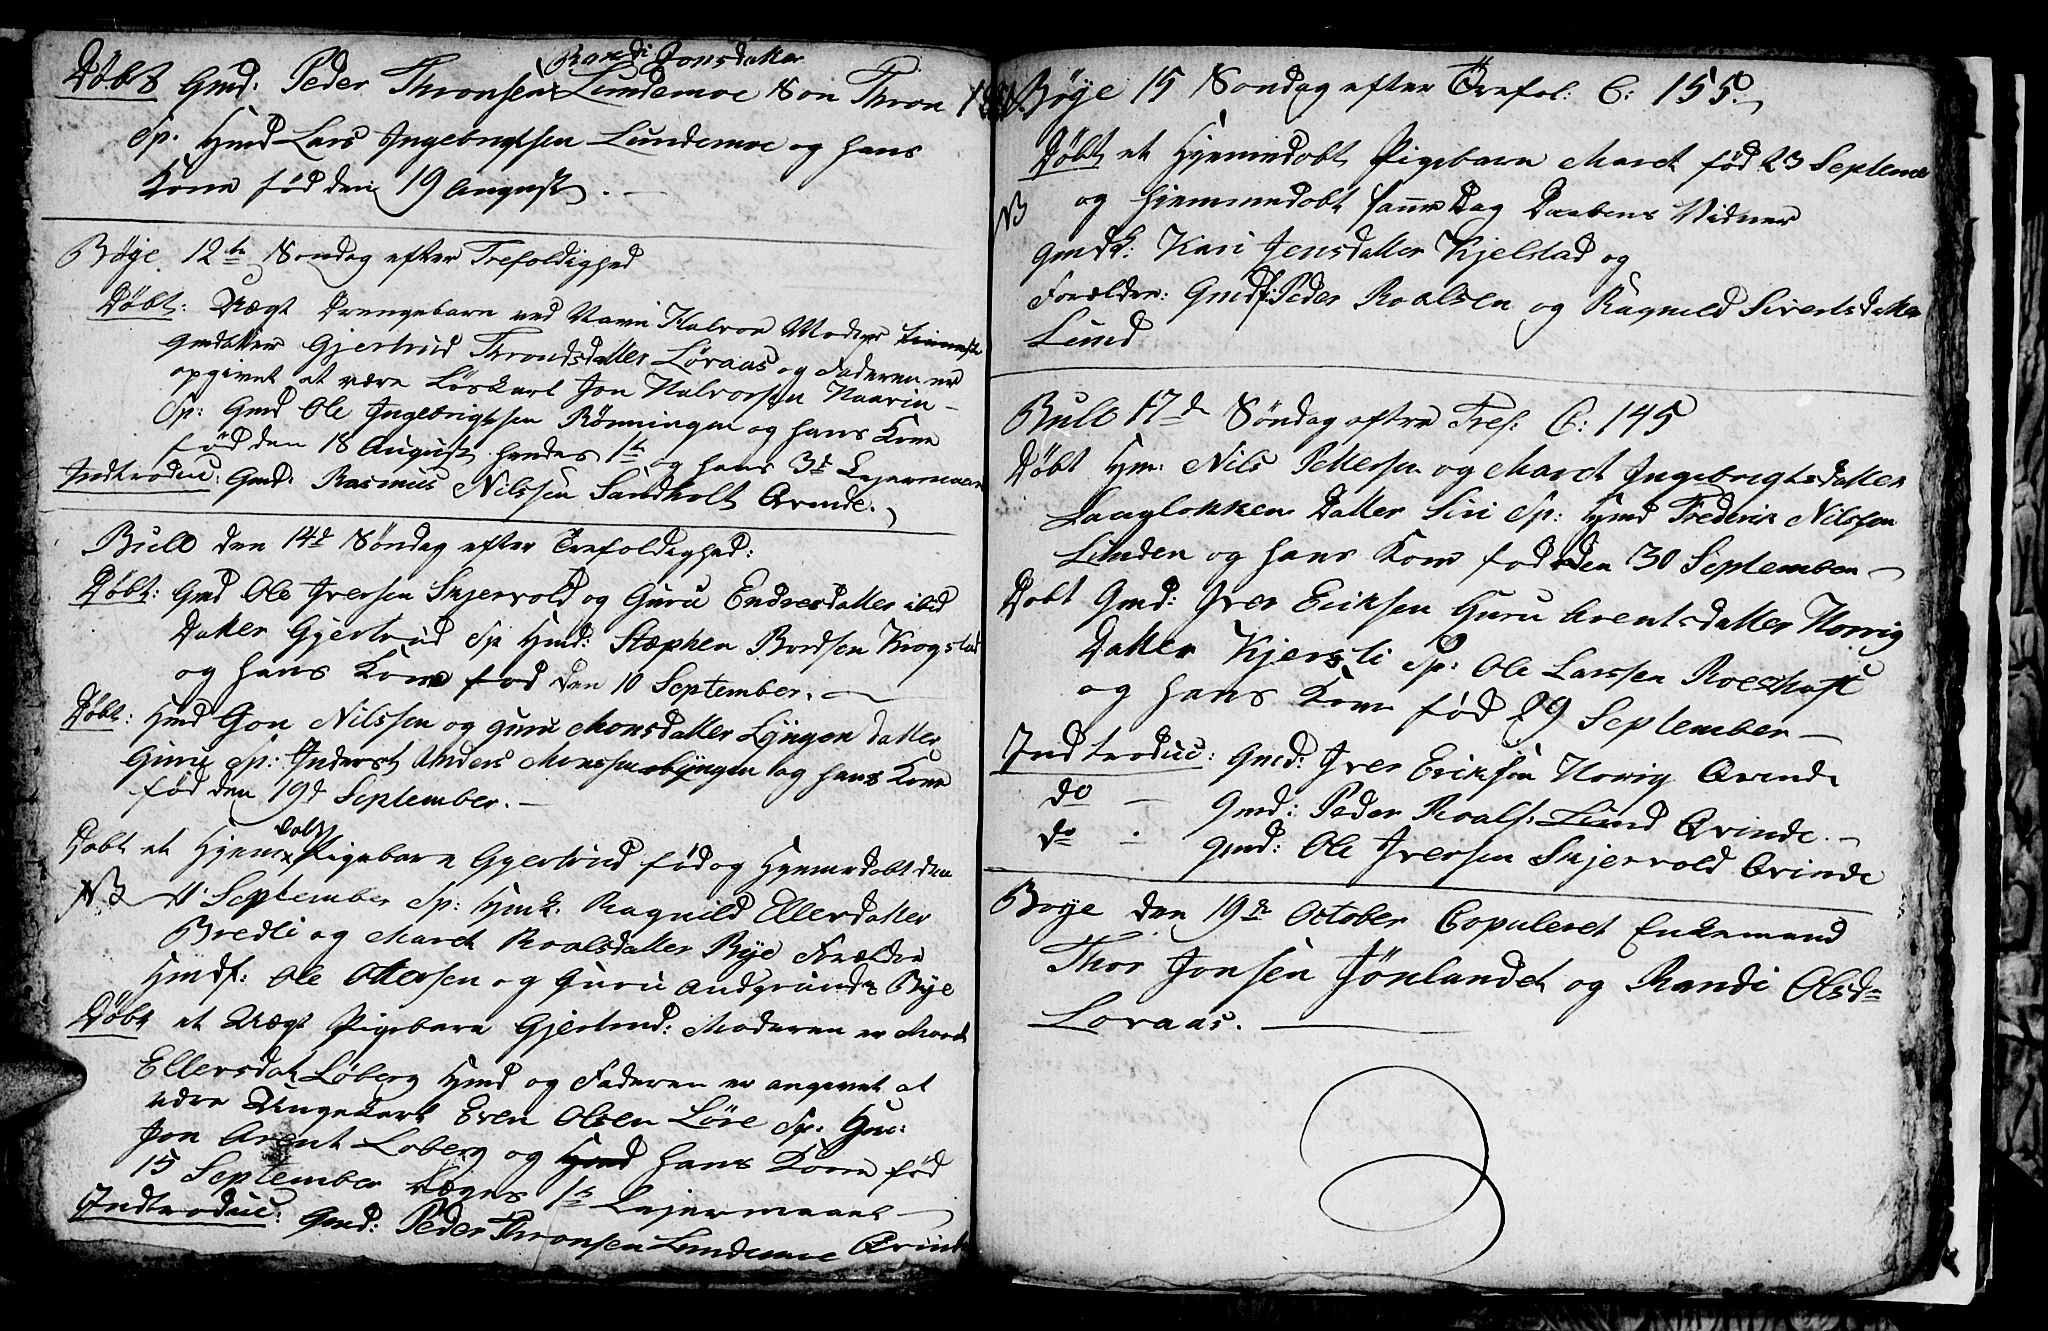 Randi Jonsdatter
Døbt Gmd: Peder Thronsen Lundemoe Søn Thron
Sp. Hmd Lars Ingebrigtsen Lundemoe og hans
Kone fød den 19 August. —
Bøye 12te Søndag efter Trefoldighed
Døbt: Uægt Drengebarn ved Navn Halvor Moder
Gmdatter Gjertrud Throndsdatter Løraas og Faderen er
opgivet at være Løskarl Jon Halvorsen Haarin
Sp: Gmd Ole Ingebrigtsen Rønningen og hans Kone
fød den 18 August hendes 1te og hans 3de Lejermaal
Indtroduc: Gmd: Rasmus Nilssen Sandholt Qvinde.
Bull den 14de Søndag efter Trefoldighed:
Døbt: Gmd Ole Iversen Skjervold og Guru Endresdatter ibid
Datter Gjertrud Sp Hmd: Stæphen Bordsen Krogstad
og hans Kone fød den 10 September. —
Døbt: Hmd Jon Nilssen og Guru Monsdatter Lyngen datter
Guru Sp: Inderst Anders Monssen Lyngen og hans Kone
fød den 19d September. —
døbt
Døbt et Hjem Pigebarn Gjertrud fød og Hjemedøbt den
NB — 11 September Sp: Hmk. Ragnild Ellersdatter
Bredli og Maret Roalsdatter Bye Forældre
Hmdf: Ole Ottersen og Guru Andgrunds Bye
Døbt et Uægt Pigebarn Gjertrud: Moderen er Maret
Ellersdat Løberg Hmd og Faderen er angivet at
være Ungekarl Even Olsen Løre Sp. Gm:
Jon Arent Loberg og Hmd hans Kone fød
15 September Deres 1te Lejermaal —
Indtroduc: Gmd: Peder Thronsen Lundemoe Qvinde
Bøye 15 Søndag efter Trefol: C: 155.
Døbt et Hjemmedøbt Pigebarn Maret fød 23 September
NB og hjemmedøbt samme Dag Daabens Vidner
Gmdk: Kari Jensdatter Kjelstad og
Forældre: Gmdf: Peder Roalsen og Ragnild Sivertsdatter
Lund
Bull 17de Søndag efter Tref: C: 145
Døbt Hm: Nils Pettersen og Maret Ingebrigtsdatter
Laugløkken Datter Siri Sp: Hmd Frederik Nilsson
Linden og hans Kone fød den 30 September —
Døbt Gmd: Iver Eriksen Guru Arentsdatter Norvig
Datter Kjersti Sp: Ole Larssen Roeskaft
og hans Kone fød 29 September —
Indtroduc: Gmd: Iver Eriksen Norvig Qvinde
do — Gmd: Peder Roals: Lund Qvinde. —
do — Gmd: Ole Iversen Skjervold Qvinde
Boye den 19de October Copuleret Enkemand
Thor Jonsen Jønlandet og Randi Olsdr
Loraas. —